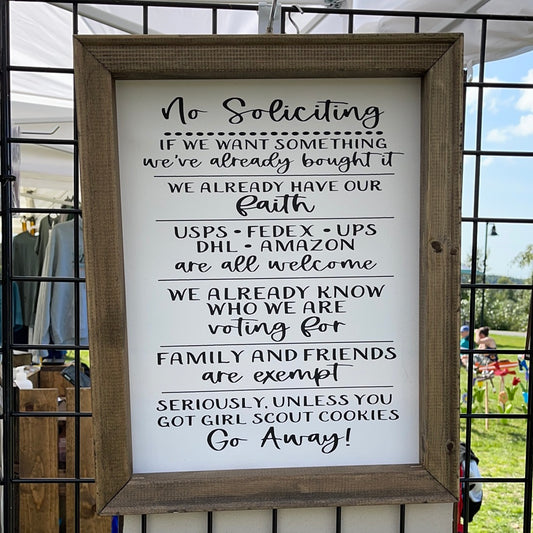 No Soliciting
IF WE WANT SOMETHING
we've already bought it
WE ALREADY HAVE OUR
faith
USPS • FEDEX • UPS
DHL • AMAZON
are all welcome
WE ALREADY KNOW
WHO WE ARE
voting for
FAMILY AND FRIENDS
are exempt
SERIOUSLY, UNLESS YOU
GOT GIRL SCOUT COOKIES
Go Away!